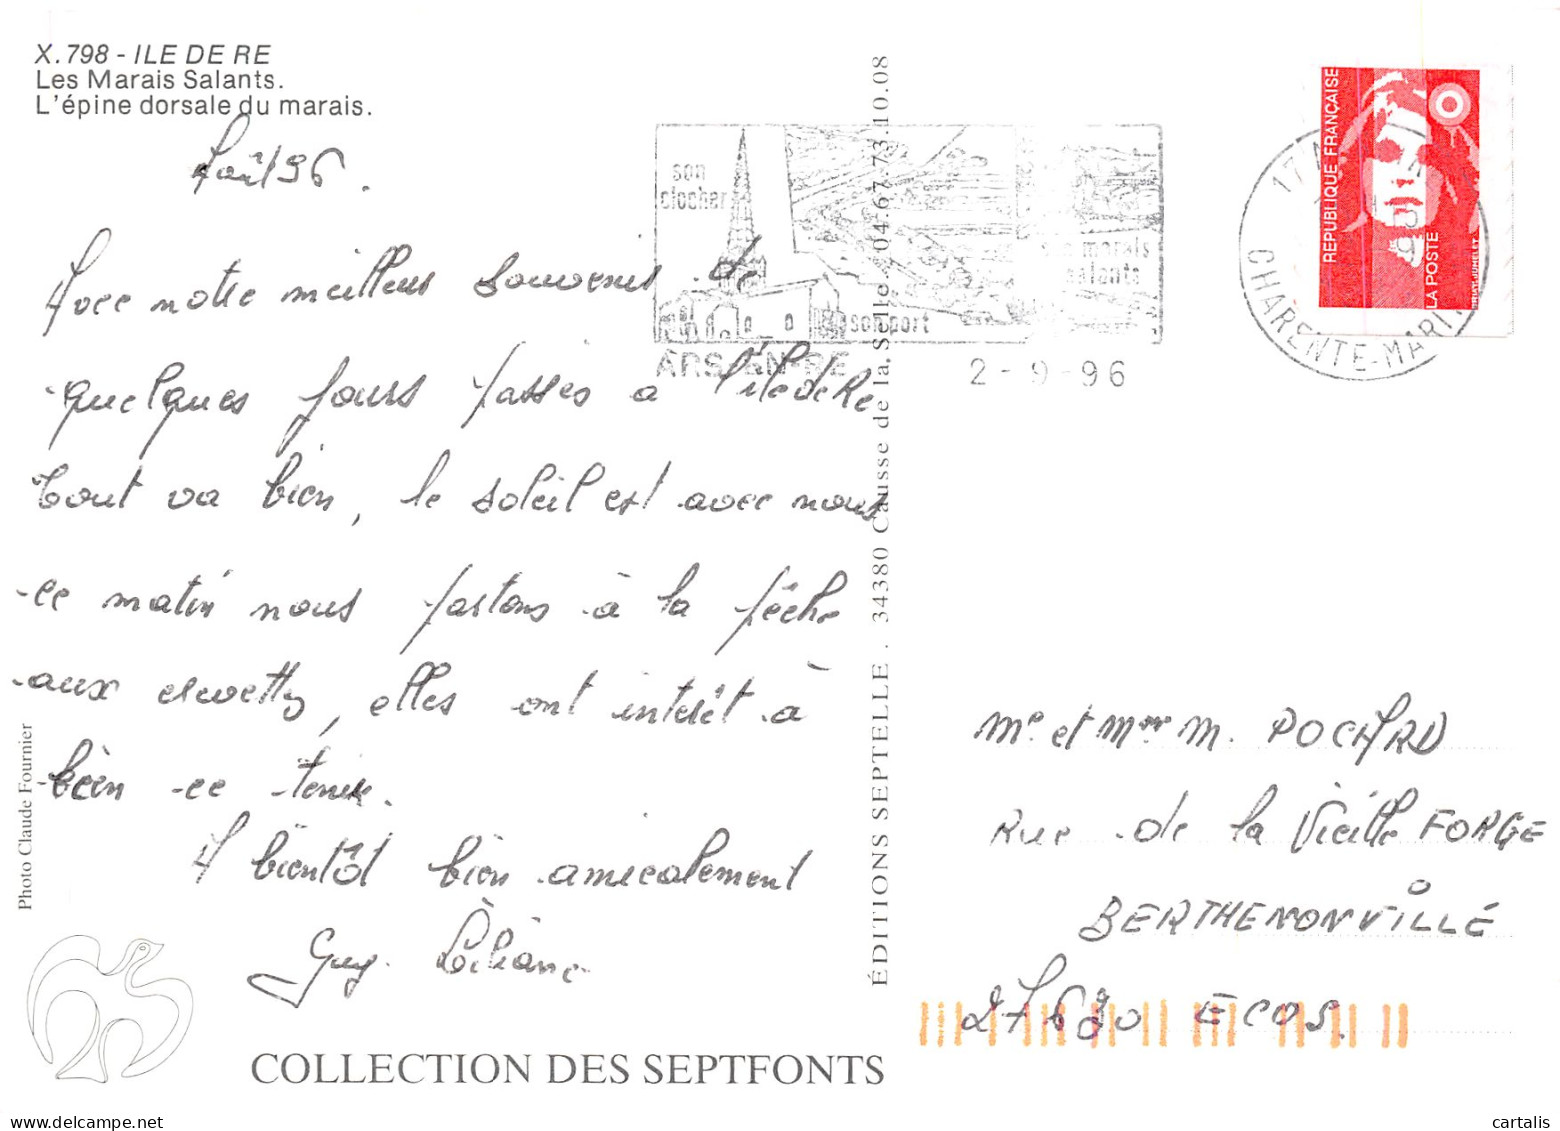 X.798 - ILE DE RE
Les Marais Salants.
L'épine dorsale du marais.
Août 96.
Avec notre meilleur souvenir de
quelques jours passés a l'ile de Re
tout va bien, le soleil est avec nous
ce matin nous partons à la pêche
aux crevettes, elles ont intérêt à
bien ce tenir.
A bientôt bien amicalement
Guy. Liliane
Photo Claude Fournier
COLLECTION DES SEPTFONTS
ÉDITIONS SEPTELLE . 34380 Causse de la Selle 04.67.73.10.08
son
clocher
son port
ses marais
salants
ARS-EN-RE
2-9-96
17 A
CHARENTE-MARI
REPUBLIQUE FRANÇAISE
LA POSTE
Mr et Mme M. POCHARD
Rue de la Vieille FORGE
BERTHENONVILLE
27630 ECOS.
www.cartalis.com
cartalis